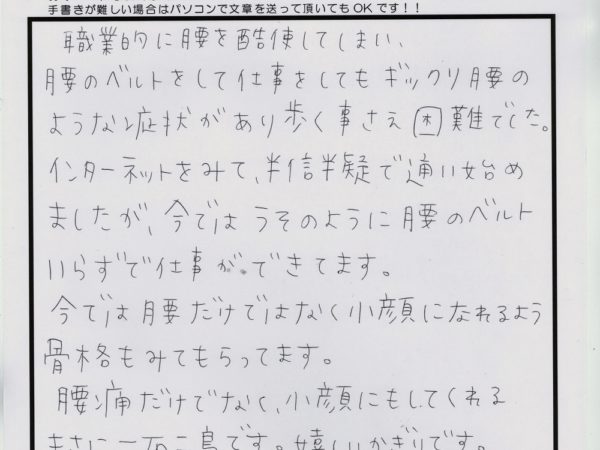 手書きが難しい場合はパソコンで文章を送って頂いてもOKです！！
職業的に腰を酷使してしまい、
腰のベルトをして仕事をしてもギックリ腰の
ような症状があり歩く事さえ困難でした。
インターネットをみて、半信半疑で通い始め
ましたが、今ではうそのように腰のベルト
いらずで仕事ができてます。
今では腰だけではなく小顔になれるよう
骨格もみてもらってます。
腰痛だけでなく、小顔にもしてくれる
まさに一石二鳥です。嬉しいかぎりです。